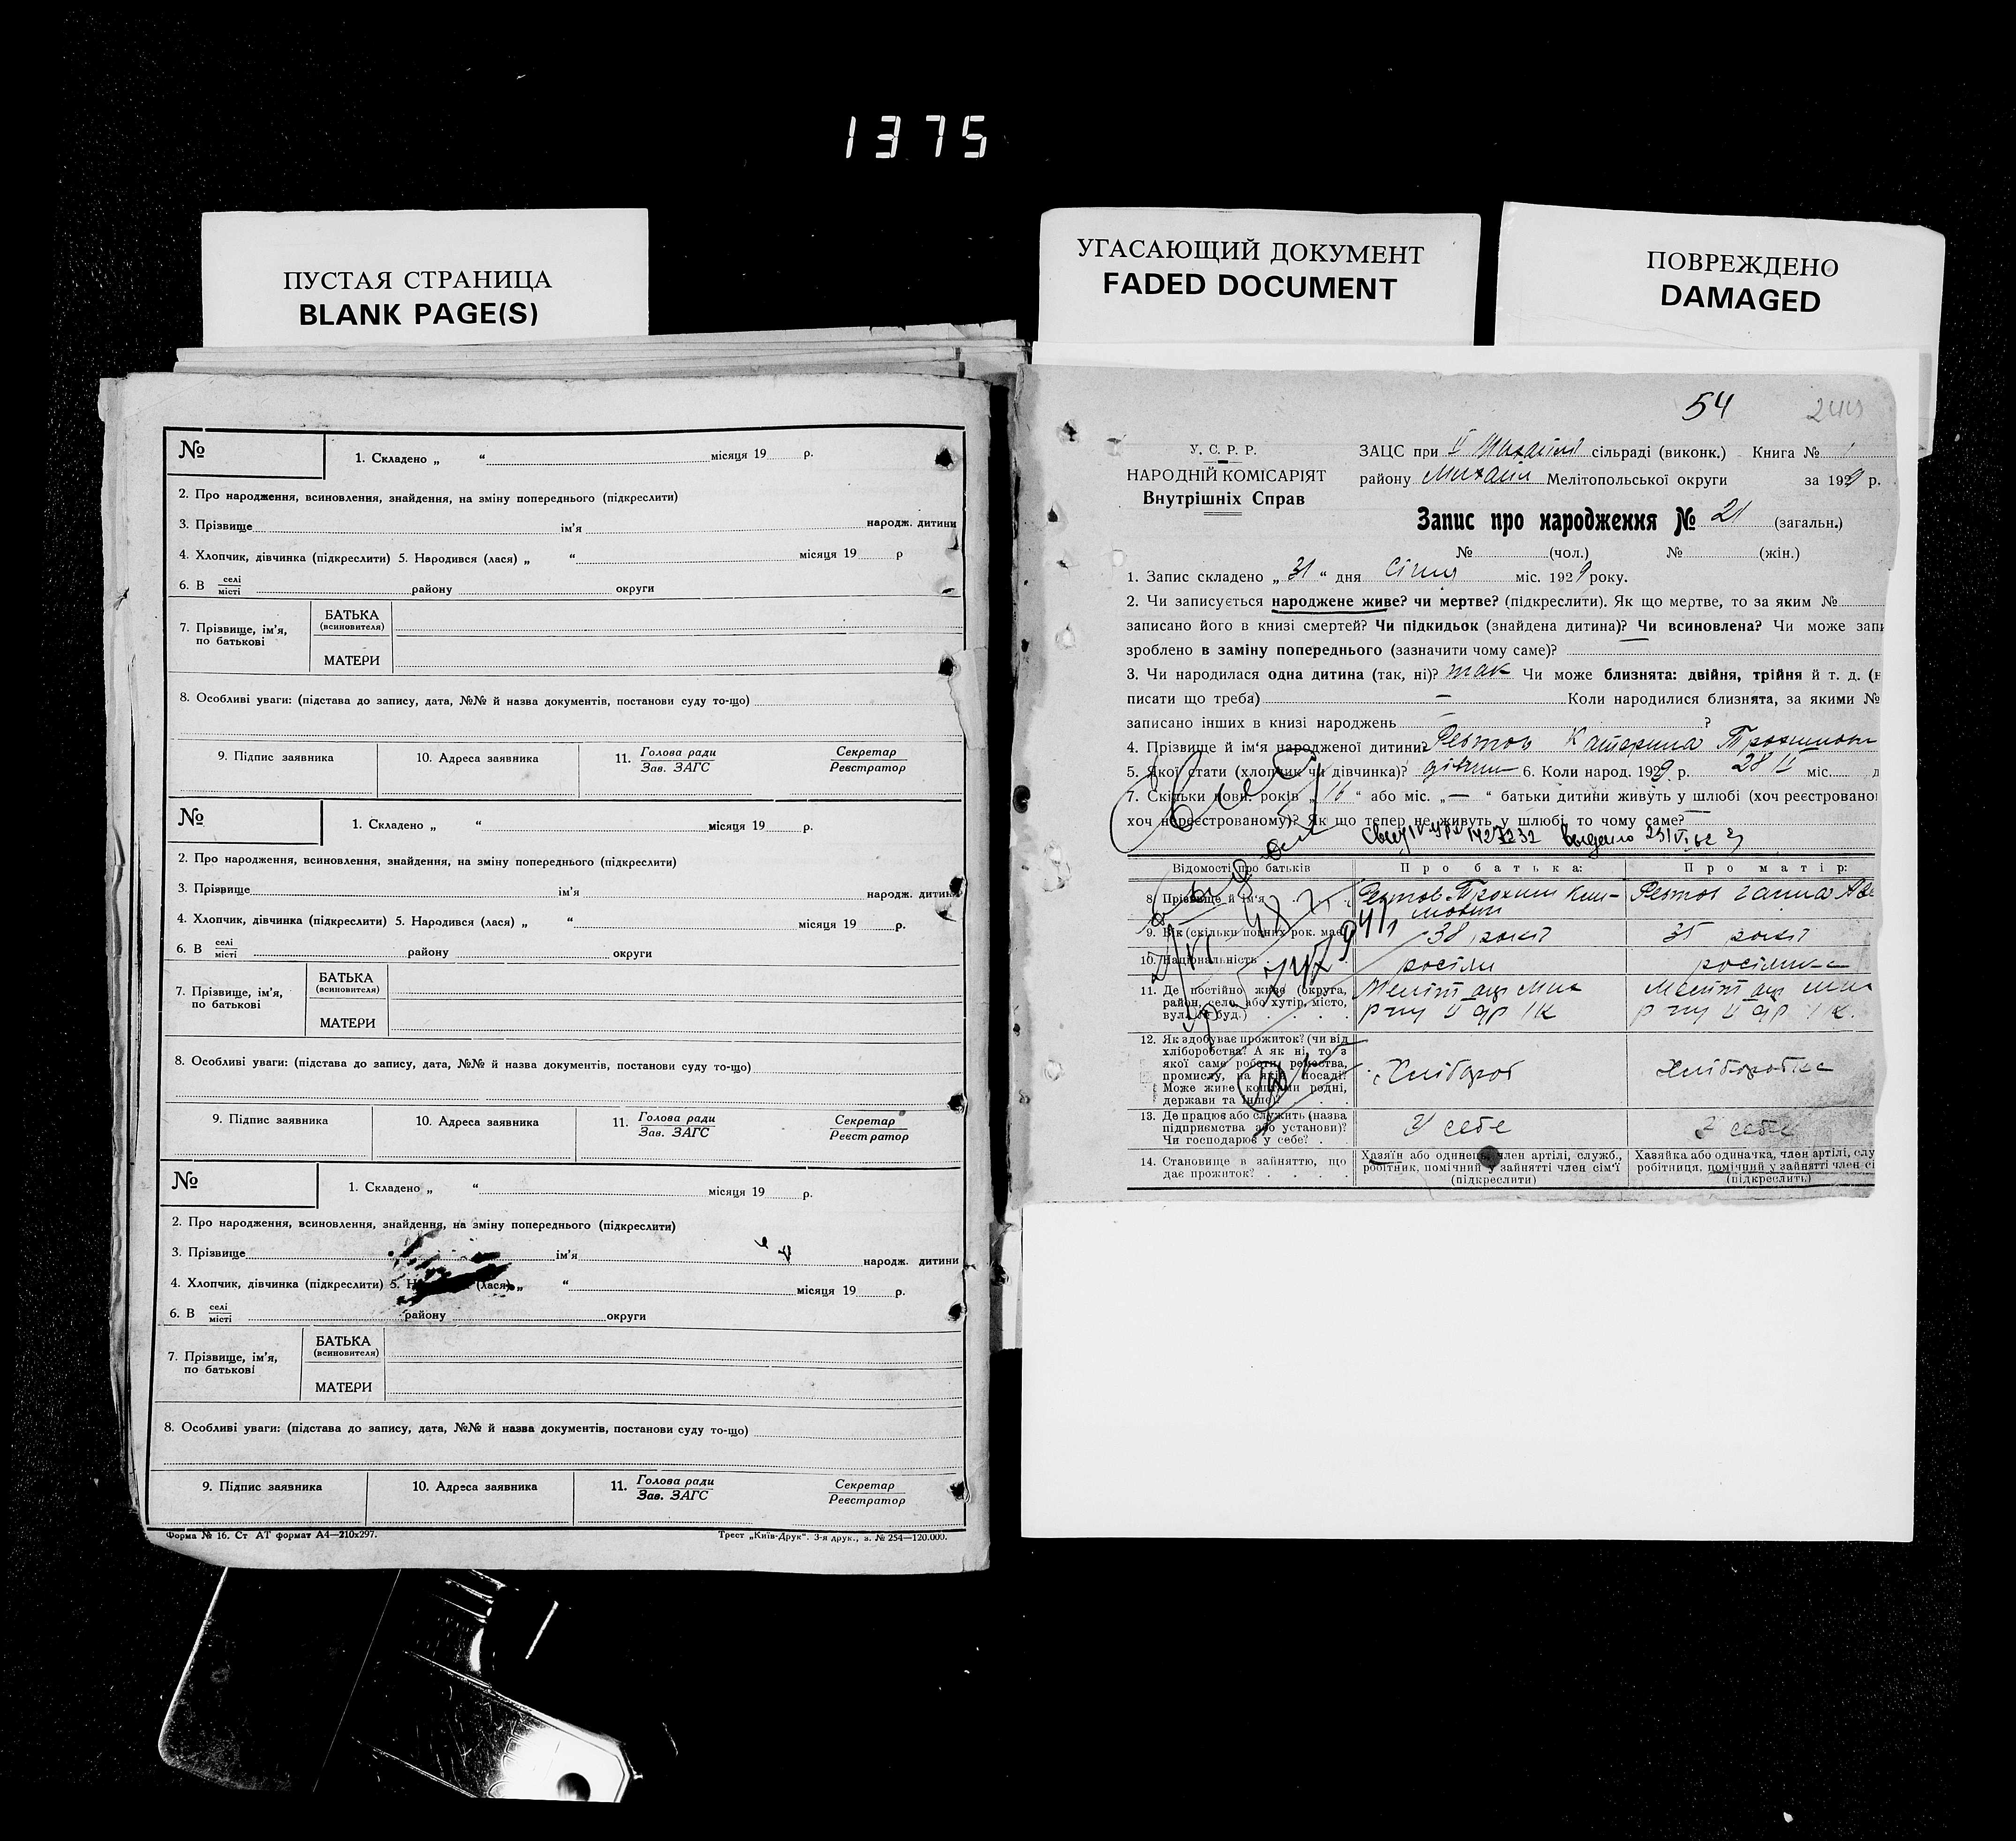 1375
ПУСТАЯ СТРАНИЦА
BLANK PAGE(S)
УГАСАЮЩИЙ ДОКУМЕНТ
FADED DOCUMENT
ПОВРЕЖДЕНО
DAMAGED
№
1. Складено „ “ місяця 19 р.
2. Про народження, всиновлення, знайдення, на зміну попереднього (підкреслити)
3. Прізвище ім'я народж. дитини
4. Хлопчик, дівчинка (підкреслити) 5. Народився (лася) „ “ місяця 19 р
6. В селі місті району округи
7. Прізвище, ім'я, по батькові
БАТЬКА
(всиновителя)
МАТЕРИ
8. Особливі уваги: (підстава до запису, дата, №№ й назва документів, постанови суду то-що)
9. Підпис заявника 10. Адреса заявника 11. Голова ради Зав. ЗАГС Секретар Реєстратор
№
1. Складено „ “ місяця 19 р.
2. Про народження, всиновлення, знайдення, на зміну попереднього (підкреслити)
3. Прізвище ім'я народж. дитини
4. Хлопчик, дівчинка (підкреслити) 5. Народився (лася) „ “ місяця 19 р.
6. В селі місті району округи
7. Прізвище, ім'я, по батькові
БАТЬКА
(всиновителя)
МАТЕРИ
8. Особливі уваги: (підстава до запису, дата, №№ й назва документів, постанови суду то-що)
9. Підпис заявника 10. Адреса заявника 11. Голова ради Зав. ЗАГС Секретар Реєстратор
№
1. Складено „ “ місяця 19 р.
2. Про народження, всиновлення, знайдення, на зміну попереднього (підкреслити)
3. Прізвище ім'я народж. дитини
4. Хлопчик, дівчинка (підкреслити) 5. Н (лася) „ “ місяця 19 р.
6. В селі місті району округи
7. Прізвище, ім'я, по батькові
БАТЬКА
(всиновителя)
МАТЕРИ
8. Особливі уваги: (підстава до запису, дата, №№ й назва документів, постанови суду то-що)
9. Підпис заявника 10. Адреса заявника 11. Голова ради Зав. ЗАГС Секретар Реєстратор
Форма № 16. Ст АТ формат А4—210х297. Трест „Київ-Друк“. 3-я друк., з. № 254—120.000.
54
У. С. Р. Р.
НАРОДНІЙ КОМІСАРІЯТ
Внутрішніх Справ
ЗАЦС при сільраді (виконк.) Книга № 1
району Михайл Мелітопольської округи за 1929 р.
Запис про народження № 21 (загальн.)
№ (чол.) № (жін.)
1. Запис складено „ 31 “ дня січня міс. 1929 року.
2. Чи записується народжене живе? чи мертве? (підкреслити). Як що мертве, то за яким №
записано його в книзі смертей? Чи підкидьок (знайдена дитина)? Чи всиновлена? Чи може запи
зроблено в заміну попереднього (зазначити чому саме)?
3. Чи народилася одна дитина (так, ні)? так Чи може близнята: двійня, трійня й т. д. (н
писати що треба) — Коли народилися близнята, за якими №
записано інших в книзі народжень — ?
4. Прізвище й ім'я народженої дитини? Катерина
5. Якої стати (хлопчик чи дівчинка)? дівчин 6. Коли народ. 1929 р. 28 міс.
7. Скільки повн. років „ 16 “ або міс. „ — “ батьки дитини живуть у шлюбі (хоч реєстрованом
хоч нереєстрованому)? Як що тепер не живуть у шлюбі, то чому саме? —
Відомості про батьків Про батька: Про матір:
8. Прізвище й ім'я Трохим Ганна
9. Вік (скільки повних рок. має) 38 років 35 років
10. Національність росіян росіянка
11. Де постійно живе (округа, район, село, або хутір, місто, вул. й буд.)
12. Як здобуває прожиток? (чи від хліборобства? А як ні, то з якої саме роботи, ремества, промислу, на якій посаді? Може живе коштами родні, держави та інше)? Хлібороб хліборобка
13. Де працює або служить (назва підприємства або установи)? Чи господарює у себе? У себе У себе
14. Становище в зайняттю, що дає прожиток?
Хазяїн або одинець, член артілі, служб., робітник, помічний у зайнятті член сім'ї (підкреслити)
Хазяйка або одиначка, член артілі, слу робітниця, помічний у зайнятті член сі (підкреслить)